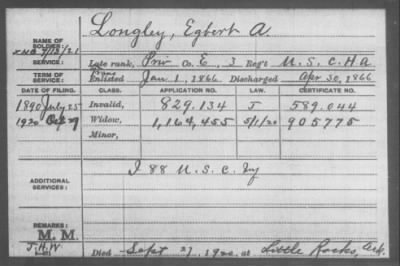 NAME OF SOLDIER: Longley, Egbert A.
SERVICE: Late rank, Priv Co. E, 3 Reg't U. S. C. H. A
TERM OF SERVICE: Enlisted Jan 1, 1866. Discharged Apr 30, 1866
DATE OF FILING. CLASS. APPLICATION NO. LAW. CERTIFICATE NO.
1890 July 25 Invalid, 829.134 J 589.044
1920 Oct 29 Widow, 1,164,455 5/1/20 905775
Minor,
ADDITIONAL SERVICES: I 88 U.S.C. Inf
REMARKS:
M. M.
J.H.W
Died Sept 27, 1920, at Little Rock, Ark.